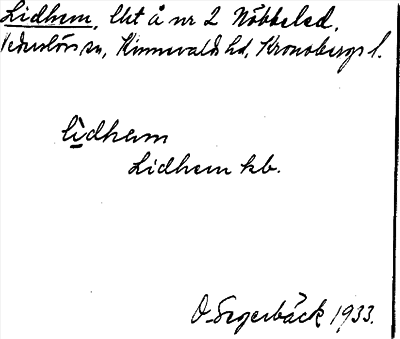 Lidhem, lht å nr 2 Nöbbeled,
Vederslövs sn, Kinnevalds hd, Kronobergs l.
lìdhem
Lidhem kb.
O. Segerbäck 1933.